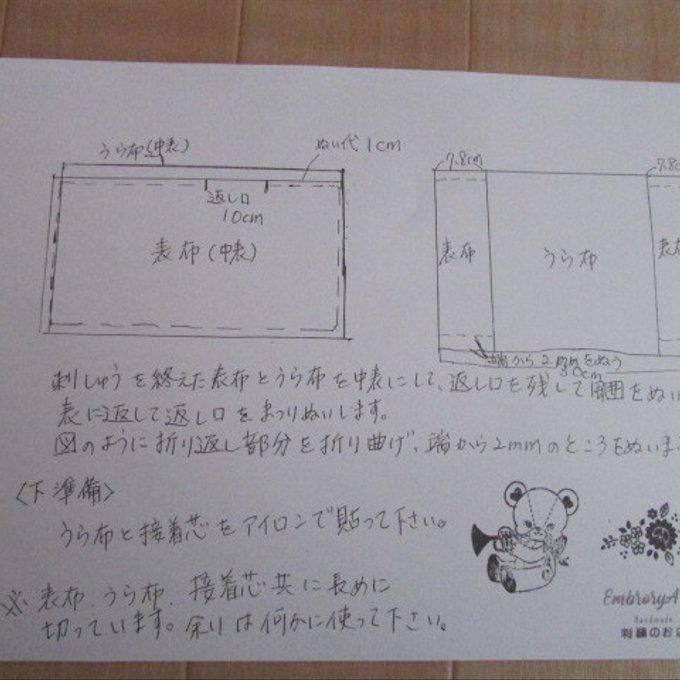 うら布(中表)
ぬい代 1cm
返し口
10cm
表布(中表)
7.8cm
7.8c
表布
うら布
表布
端から2mmをぬう
30cm
刺しゅうを終えた表布とうら布を中表にして、返し口を残して周囲をぬい
表に返して返し口をまつりぬいします。
図のように折り返し部分を折り曲げ、端から2mmのところをぬいま
〈下準備〉
うら布と接着芯をアイロンで貼って下さい。
※ 表布、うら布、接着芯共に長めに
切っています。余りは何かに使って下さい。
EmbroryA
Handmade
刺繍のお